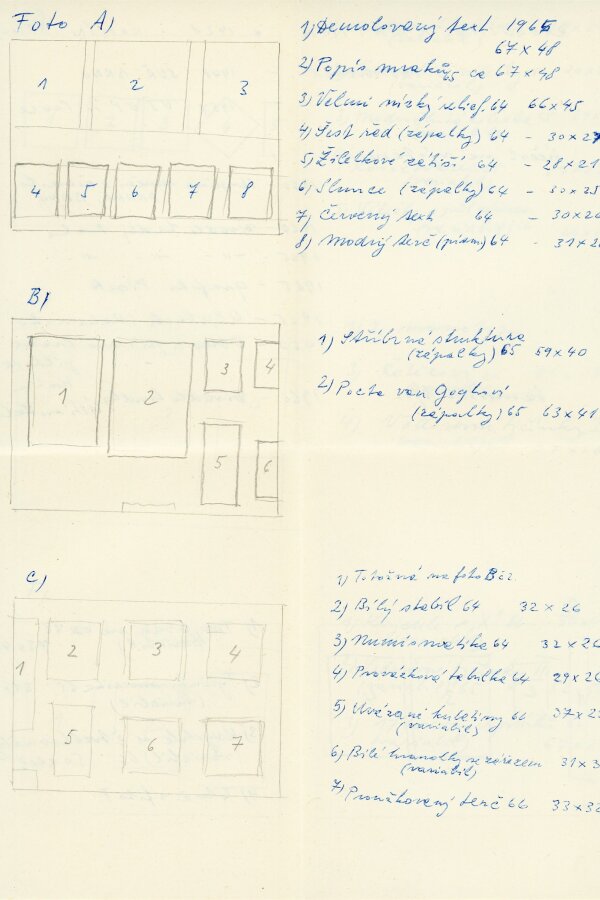 Foto A)
1 2 3
4 5 6 7 8
1) Demolovaný text 1965
67 x 48
2) Popis mraků 65 ca 67 x 48
3) Velmi nízký relief. 64 66 x 45
4) Šest řad (zápalky) 64 – 30 x
5) Žiletkové zátiší 64 – 28 x 21
6) Slunce (zápalky) 64 – 30 x 25
7) Červený text 64 – 30 x
8) Modrý terč (písm) 64 - 31 x
B)
1 2 3 4
5 6
1) Stříbrná struktura
(zápalky) 65 59 x 40
2) Pocta van Goghovi
(zápalky) 65 63 x 41
C)
1 2 3 4
5 6 7
1) Totožná na foto B
2) Bílý stabil 64 32 x 26
3) Numismatika 64 32 x 26
4) Provázková tabulka 64 29 x
5) Uvázané kuletiny 66 37 x
(variabil)
6) Bílé hranolky se zářezem 31 x
(variabil)
7) Pronáhovaný terč 66 33 x